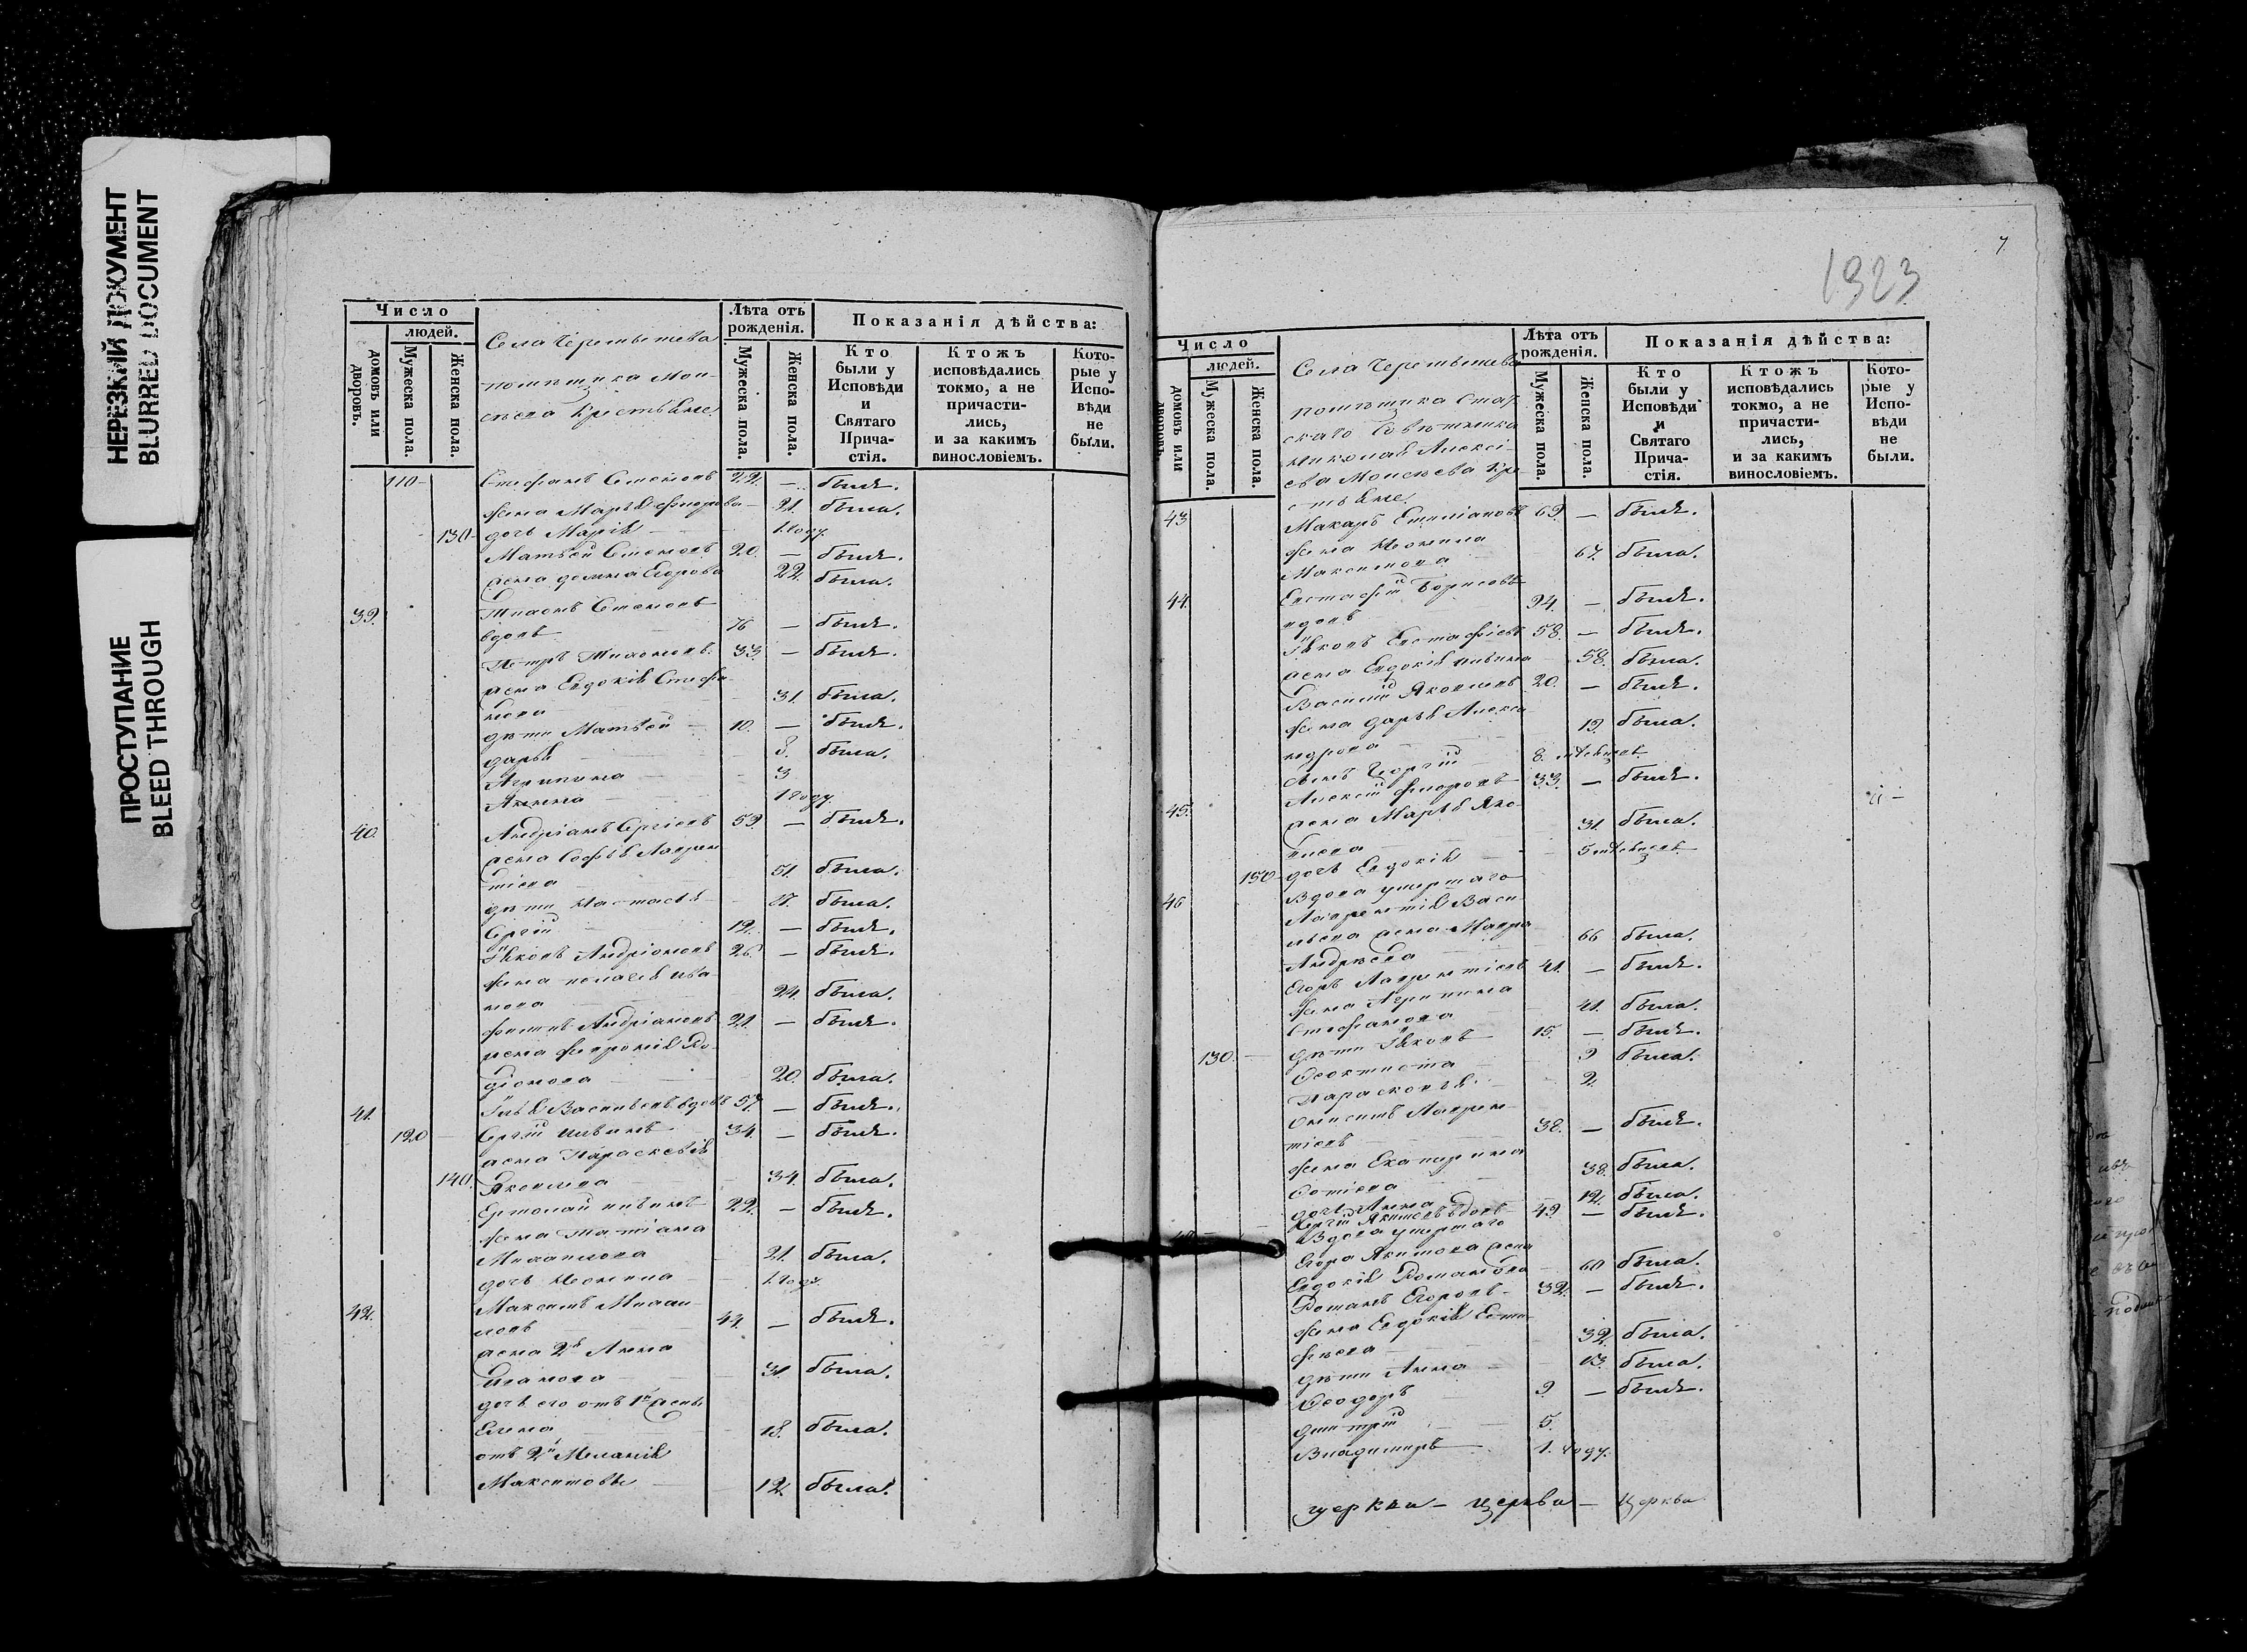 НЕРЕЗКИЙ ДОКУМЕНТ
BLURRED DOCUMENT
ПРОСТУПАНИЕ
BLEED THROUGH
Число
людей.
домовъ или дворовъ.
Мужеска пола.
Женска пола.
Села Черемышева
помѣщика Мои-
сѣева крестьяне
Лѣта отъ рожденія.
Мужеска пола.
Женска пола.
Показанія дѣйства:
Кто были у Исповѣди и Святаго Прича-стія.
Ктожъ исповѣдались токмо, а не причасти-лись, и за какимъ винословіемъ.
Кото-рые у Испо-вѣди не были.
110 Стефанъ Семеновъ 22 — былъ.
жена Марья 21. была.
130 дочь Марія 1 году
Матвей Семеновъ 20 — былъ.
жена Домна Егорова 22 была.
39. Семеновъ
вдовъ 76 — былъ.
Петръ Тихоновъ 33 — былъ.
жена Евдокія Стефа-
нова 31. была.
дѣти Матвей 10. — былъ.
Дарья 8. была.
Агрипина 3
Акилина 1 году
40. Андріанъ Сергіевъ 59. — былъ.
жена Софья Лаврен
тіева 51 была.
дѣти Настасья была.
Сергій 12. — былъ.
Іяковъ Андріоновъ 26. — былъ.
жена Пелагея Ива-
нова 24. была.
Филипъ Андріановъ 21. — былъ.
жена Февронія Ро-
діонова 20. была.
41. Илья Васильевъ вдовъ 57. — былъ.
120 Сергій Ильинъ 34. — былъ.
жена Параскевія
140. Яковлева 34. была.
Ермолай Ильинъ 22. — былъ.
жена Татіана
Михаилова 21. была.
дочь Неонила 1 году.
42. Максимъ Михаи
ловъ 44. — былъ.
жена 2я Анна
31. была.
дочь его отъ 1й жены
Елена 18. была.
отъ 2й Меланія
Максимовы 12. была.
7
1923
Число
людей.
домовъ или дворовъ.
Мужеска пола.
Женска пола.
Села Черемышева
помѣщика Стат
скаго Совѣтника
Николая Алексі-
ева Моисѣева кре
стьяне
Лѣта отъ рожденія.
Мужеска пола.
Женска пола.
Показанія дѣйства:
Кто были у Исповѣди и Святаго Прича-стія.
Ктожъ исповѣдались токмо, а не причасти-лись, и за какимъ винословіемъ.
Кото-рые у Испо-вѣди не были.
43 Макаръ Емиліановъ 69. — былъ.
жена Неонила
Максимова 67. была.
44. Евстафій Борисовъ
вдовъ 94. — былъ.
Іяковъ Евстафіевъ 58. — былъ.
жена Евдокія Ильина 58. была.
Василій Яковлевъ 20. — былъ.
жена Дарья Алекса
ндрова 19. была.
сынъ Георгій 8. мѣсяцовъ
45. Алексій Флоровъ 33. — былъ.
жена Марья Яко-
влева 31. была.
150 дочь Евдокія 5 мѣсяцовъ
46 Вдова умершаго
Лаврентія Васи
льева жена Мавра
Андреева 66 была.
Егоръ Лаврентіевъ 41. — былъ.
жена Агрипина
Стефанова 41. была.
130. дѣти Іяковъ 15. — былъ.
Феоктиста 9 была.
Параскевья 2
Онисимъ Лаврен-
тіевъ 38. — былъ.
жена Екатерина
Фотіева 38. была.
дочь Анна 12. была.
Сергій Якимовъ вдовъ 49 — былъ.
Вдова умершаго
Егора Якимова жена
Евдокія Романова 60 была.
Романъ Егоровъ 32. — былъ.
жена Евдокія Ести-
фѣева 32. была.
дѣти Анна 13. была.
Феодоръ 9 — былъ.
Дмитрій 5.
Владимиръ 1. году.
церква — церква — церква